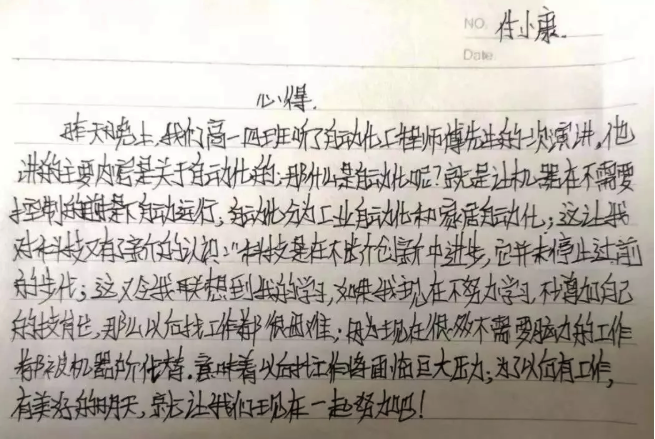 NO. 任小康.
Date.
心得.
昨天晚上,我们高一四班听了自动化工程师傅先生的一次演讲,他
讲的主要内容是关于自动化的;那什么是自动化呢?就是让机器在不需要
控制的前提下自动运行,自动化分为工业自动化和家居自动化;这让我
对科技又有了新的认识:"科技是在不断创新中进步,它并未停止过前
的步伐;这又令我联想到我的学习,如果我现在不努力学习,不增加自己
的技能,那么以后找工作都很困难;因为现在很多不需要脑力的工作
都被机器所代替.意味着以后找工作将面临巨大压力;为了以后有工作,
有美好的明天,就让我们现在一起努力吧!